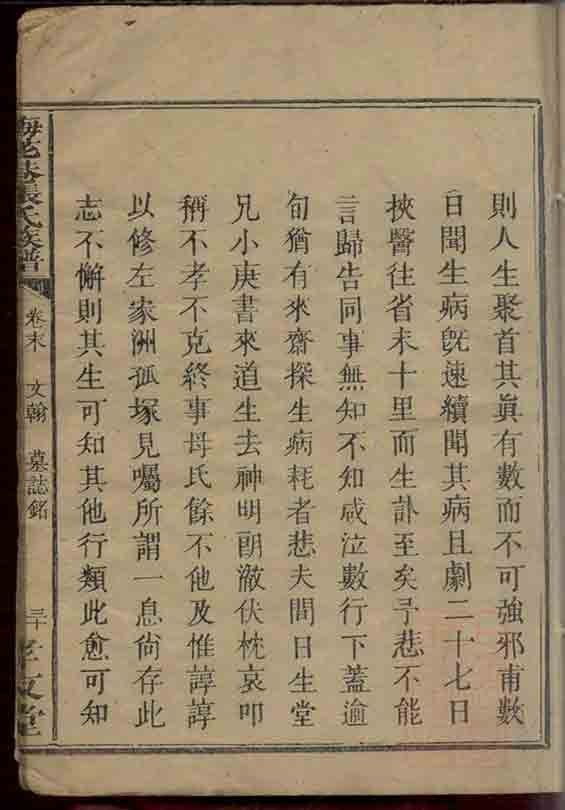 則人生聚首其眞有數而不可強邪甫數
日聞生病旣速續聞其病且劇二十七日
挾醫往省未十里而生訃至矣予悲不能
言歸告同事無知不知咸泣數行下蓋逾
旬猶有來齋探生病耗者悲夫間日生堂
兄小庚書來道生去神明朗澈伏枕哀叩
稱不孝不克終事母氏餘不他及惟諄諄
以修左家洲孤塚見囑所謂一息尙存此
志不懈則其生可知其他行類此愈可知
張氏族譜
卷末 文翰 墓誌銘
三十
孝友堂